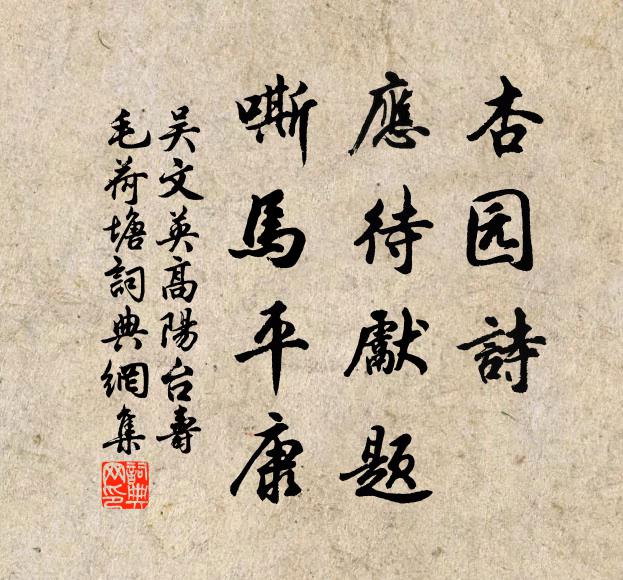 杏园詩
應待獻題
嘶馬平康
吴文英高陽台壽
毛荷塘詞典網集
詞典網印